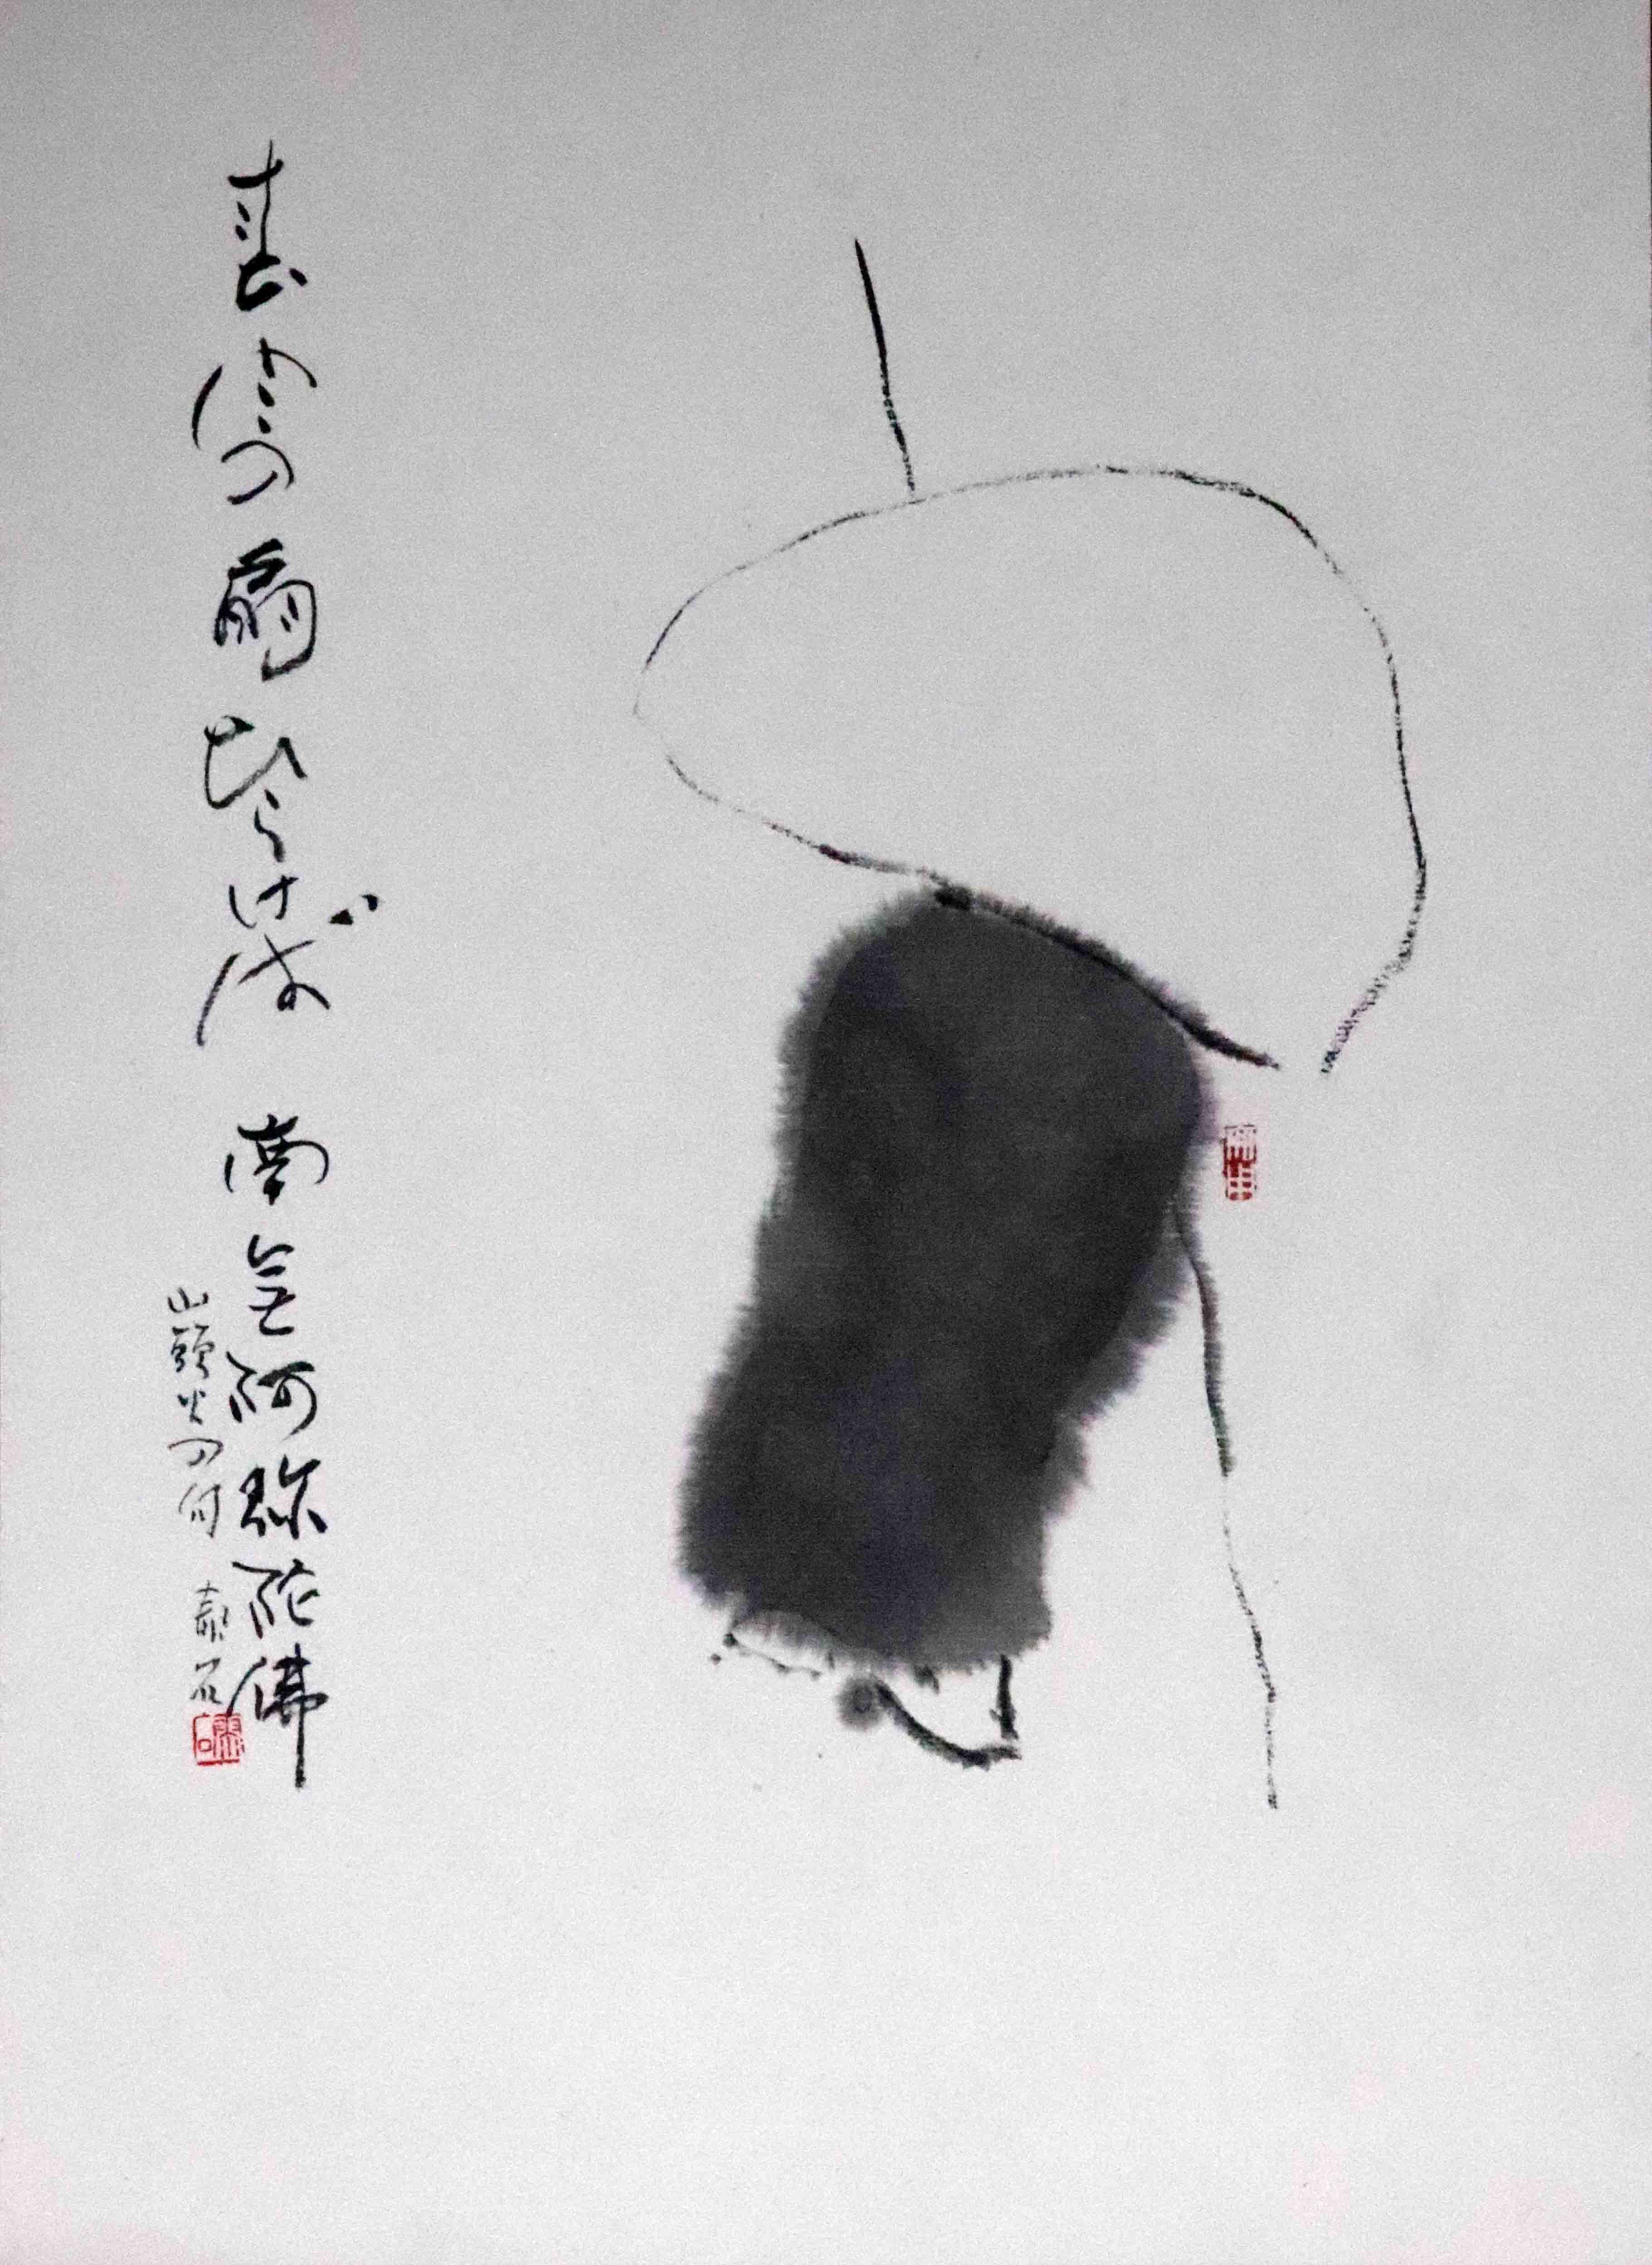 の扇ひらけば 南無阿弥陀佛
山頭火の句